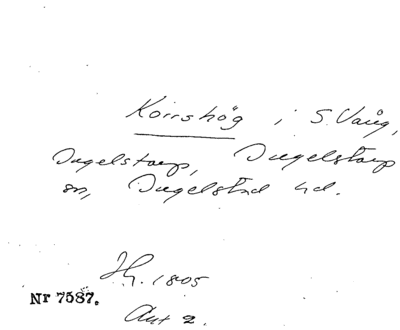 Korrshög i S. Vång,
Ingelstorp, Ingelstorp
sn, Ingelstad hd.
Hg. 1805
Akt 2.
Nr 7587.